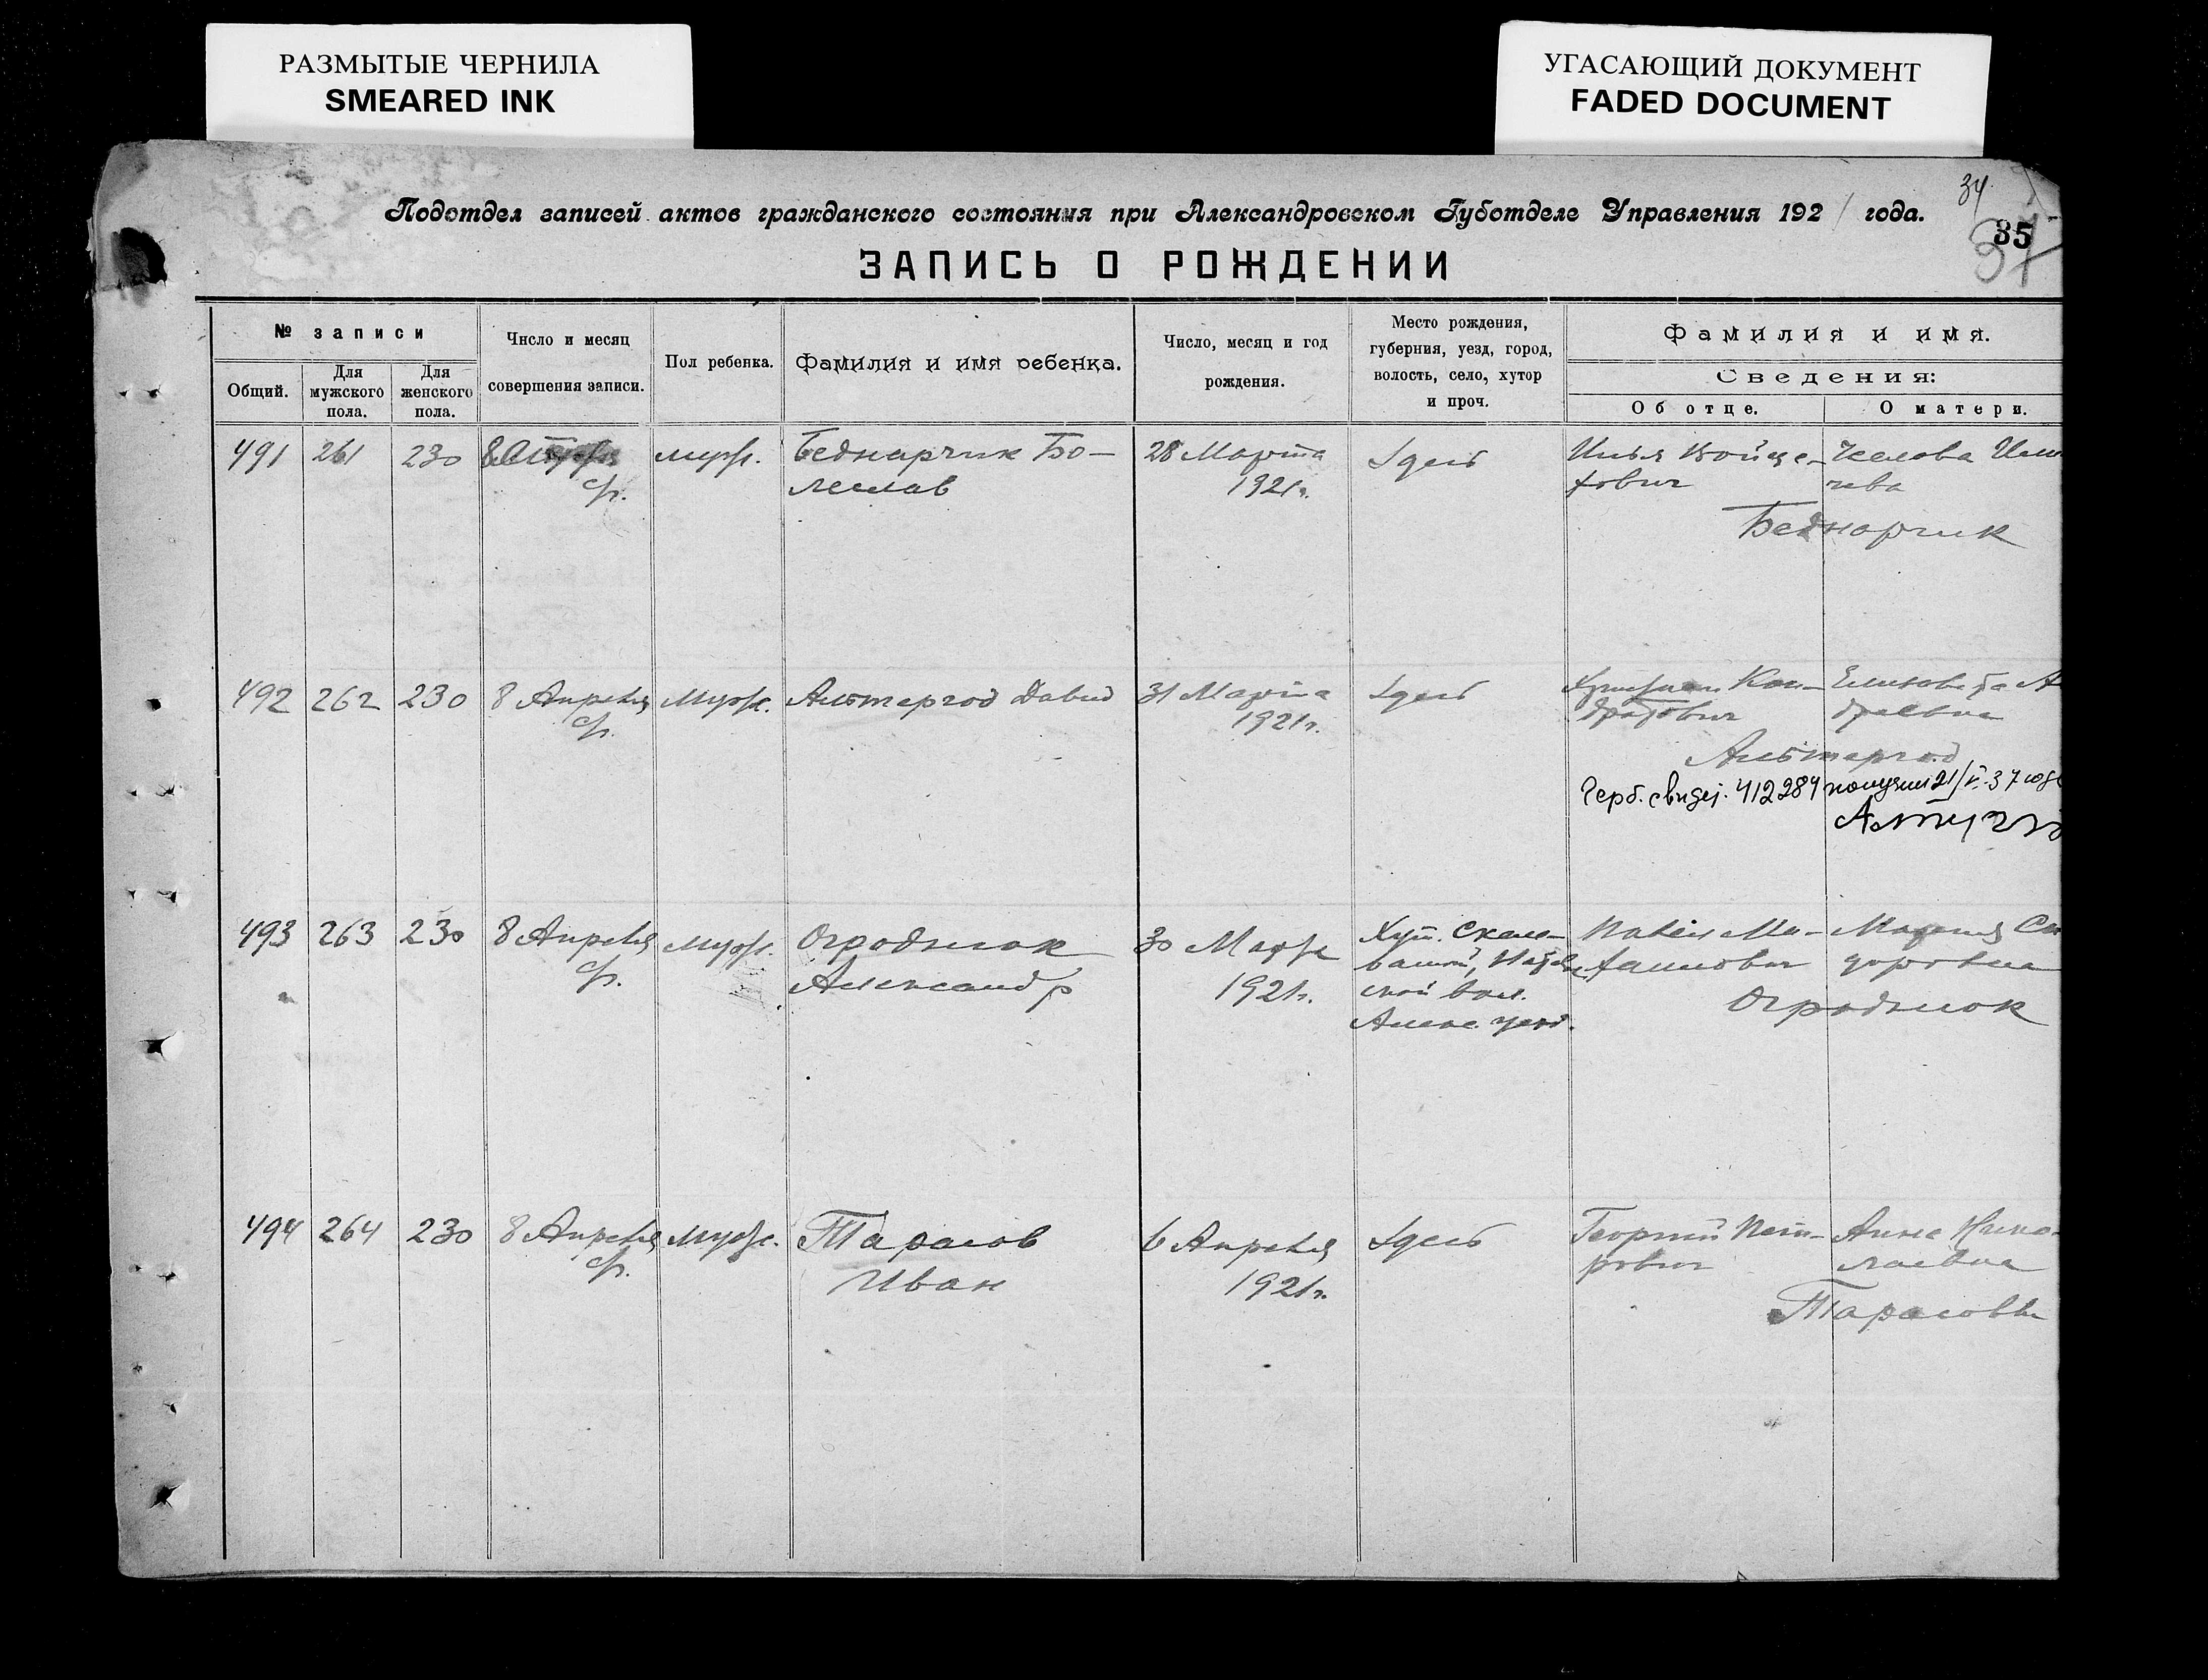 РАЗМЫТЫЕ ЧЕРНИЛА
SMEARED INK
УГАСАЮЩИЙ ДОКУМЕНТ
FADED DOCUMENT
34
Подотдел записей актов гражданского состояния при Александровском Губотделе Управления 1921 года.
35
37
ЗАПИСЬ О РОЖДЕНИИ
№ записи
Общий.
Для мужского пола.
Для женского пола.
Число и месяц совершения записи.
Пол ребенка.
Фамилия и имя ребенка.
Число, месяц и год рождения.
Место рождения, губерния, уезд, город, волость, село, хутор и проч.
Фамилия и имя.
Сведения:
Об отце.
О матери.
491 261 230 8 муж. Беднарчик Бо- 28 Марта Здесь Илья Войце-
ср. леслав 1921г. хович
Беднарчик
492 262 230 8 Апреля Муж. Альтергод Давид 31 Марта Здесь Христиан Кон- Елизавета А
ср. 1921г. дратович дреевна
Альтергод
Герб. свидет. 412284 получил 21/V-37 года
493 263 230 8 Апреля Муж. Огроднюк 30 Марта Хут. Павел Ма-
ср. Александр 1921г.
ской вол.
Алекс. уезд.
Огроднюк
494 264 230 8 Апреля Муж. Тарасов 6 Апреля Здесь Георгий Пет- Анна Нико-
ср. Иван 1921г. рович лаевна
Тарасовы